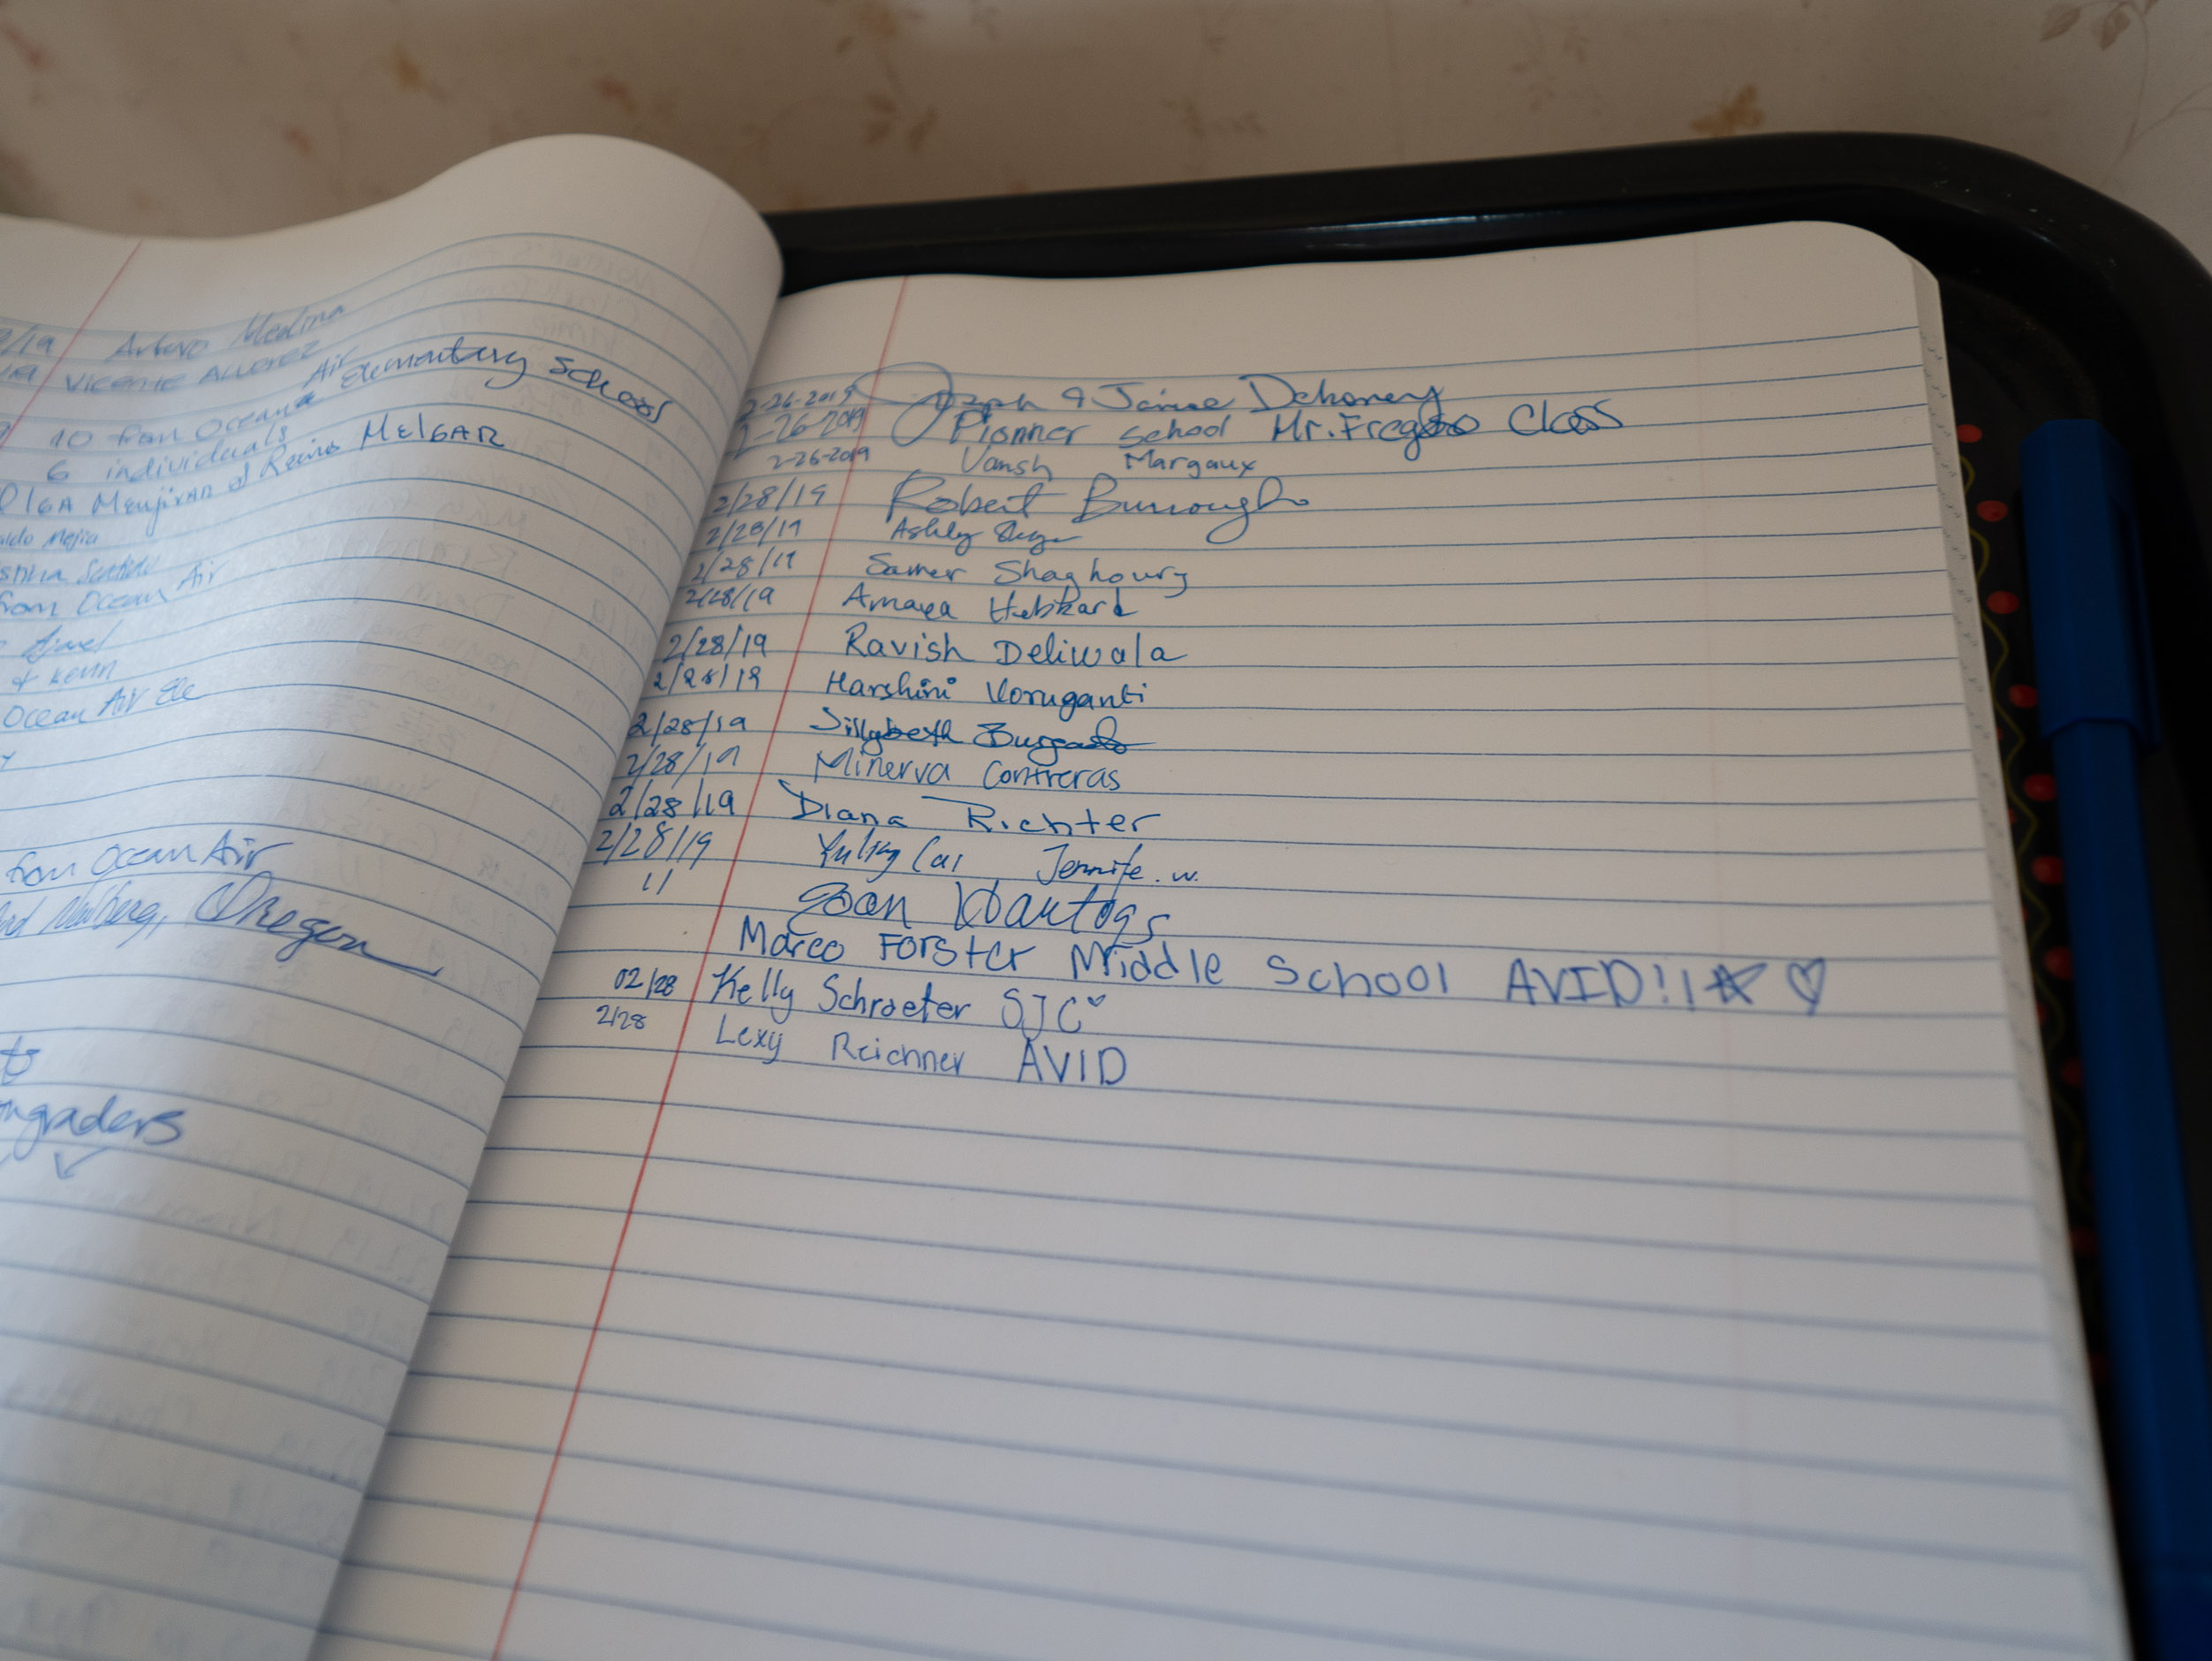 /19 Arturo Medina
Vicente Alvarez
10 from Ocean Air Elementary School
6 individuals
Olga Menjivar & Reina MELGAR
aldo Mejia
from Ocean Air
& Kevin
Ocean Air Ele
from Ocean Air
Newberg, Oregon
graders
2-26-2019 Joseph & Janine Dehoney
2-26-2019 Pionner School Mr. Class
2-26-2019 Vansh Margaux
2/28/19 Robert Burrough
2/28/19 Ashley
2/28/19 Samer Shaghoury
2/28/19 Amaya Hebbard
2/28/19 Ravish Deliwala
2/28/19 Harshini Voruganti
2/28/19
2/28/19 Minerva Contreras
2/28/19 Diana Richter
2/28/19 Cai Jennife. w.
11 Joan
Marco Forster Middle School AVID!!
02/28 Kelly Schroeter SJC
2/28 Lexy Reichner AVID